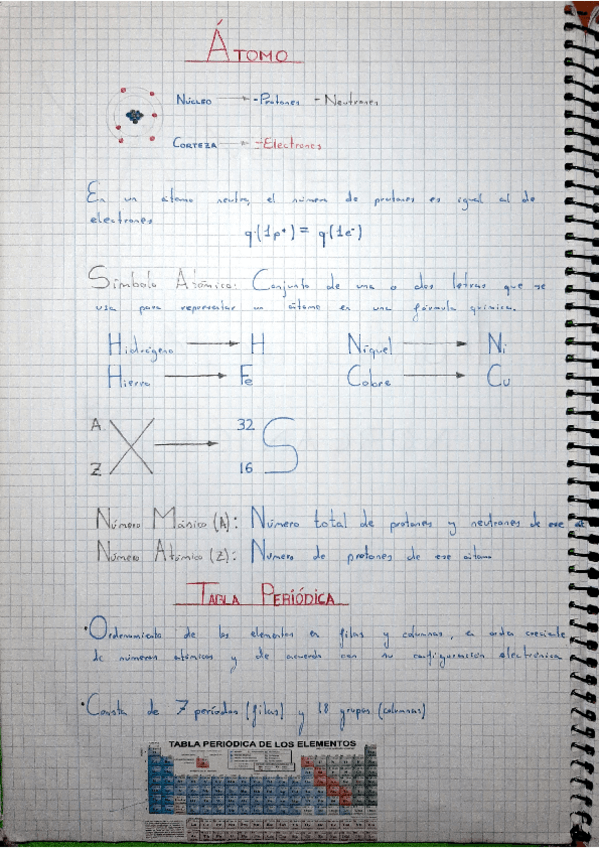 ÁTOMO
NÚCLEO → - Protones - Neutrones
CORTEZA → - Electrones
En un átomo neutro, el número de protones es igual al de
electrones
q(1p⁺) = q(1e⁻)
Símbolo Atómico: Conjunto de una o dos letras que se
usa para representar un átomo en una fórmula química.
Hidrógeno → H Níquel → Ni
Hierro → Fe Cobre → Cu
A 32
X → S
Z 16
Número Másico (A): Número total de protones y neutrones de ese át
Número Atómico (Z): Número de protones de ese átomo
TABLA PERIÓDICA
• Ordenamiento de los elementos en filas y columnas, en orden creciente
de números atómicos y de acuerdo con su configuración electrónica
• Consta de 7 períodos (filas) y 18 grupos (columnas)
TABLA PERIODICA DE LOS ELEMENTOS